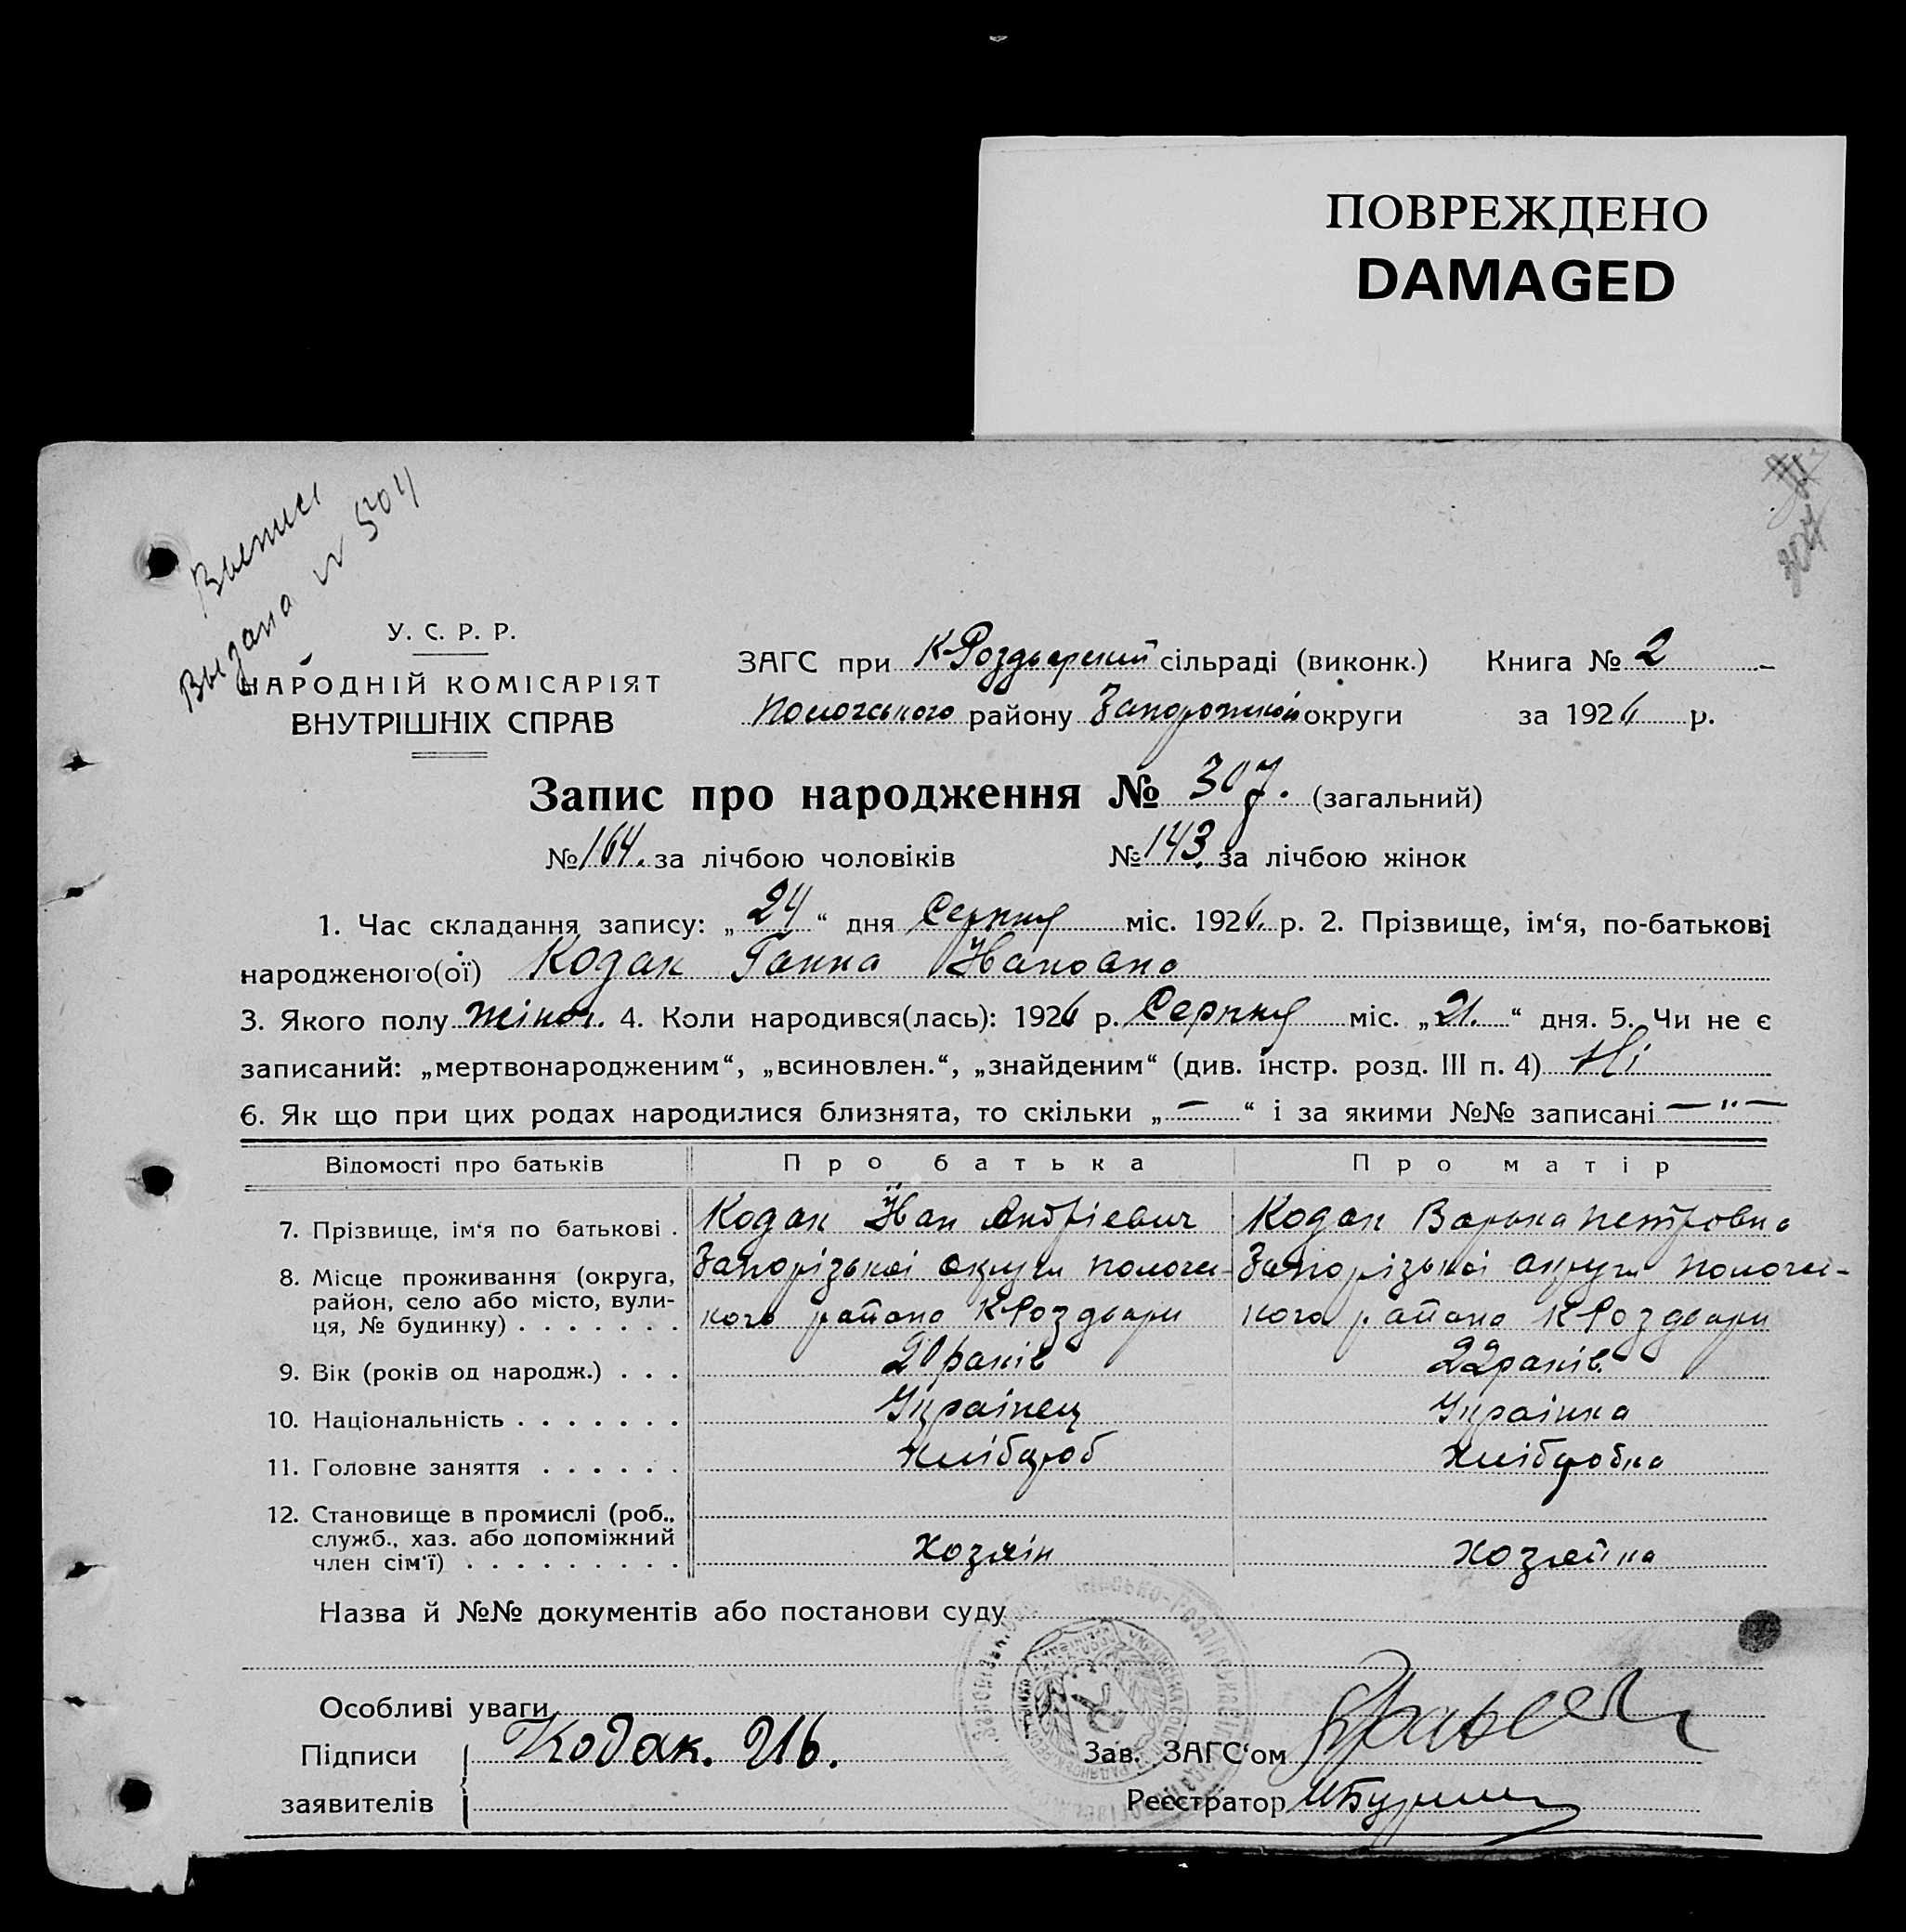 ПОВРЕЖДЕНО
DAMAGED
Выпись
Выдана № 504
307
У. С. Р. Р.
НАРОДНІЙ КОМІСАРІЯТ
ВНУТРІШНІХ СПРАВ
ЗАГС при К Роздорский сільраді (виконк.) Книга № 2
Пологського району Запорожской округи за 1926 р.
Запис про народження № 307. (загальний)
№ 164. за лічбою чоловіків № 143. за лічбою жінок
1. Час складання запису: „24“ дня Серпня міс. 1926 р. 2. Прізвище, ім‘я, по-батькові
народженого(ої) Кодак Ганна Ивановна
3. Якого полу жіноч. 4. Коли народився(лась): 1926 р. Серпня міс. „21.“ дня. 5. Чи не є
записаний: „мертвонародженим“, „всиновлен.“, „знайденим“ (див. інстр. розд. III п. 4) Ні
6. Як що при цих родах народилися близнята, то скільки „—“ і за якими №№ записані — „ —
Відомості про батьків Про батька Про матір
7. Прізвище, ім‘я по батькові . Кодак Йван Андріевич Кодак Варька Петровна
8. Місце проживання (округа, Запорізькоі округи пологсь- Запорізькоі округи пологсь-
район, село або місто, вули-
ця, № будинку) . . . . . . . кого району К Роздори кого району К Роздори
9. Вік (років од народж.) . . . 20 раків 22 раків.
10. Національність . . . . . . . Украінец Украінка
11. Головне заняття . . . . . . Хлібороб Хліборобка
12. Становище в промислі (роб.,
служб., хаз. або допоміжний
член сім‘ї) . . . . . . . . . Хозяін Хозяйка
Назва й №№ документів або постанови суду
Особливі уваги
Підписи Кодак. Ив. Зав. ЗАГС‘ом
заявителів Реєстратор